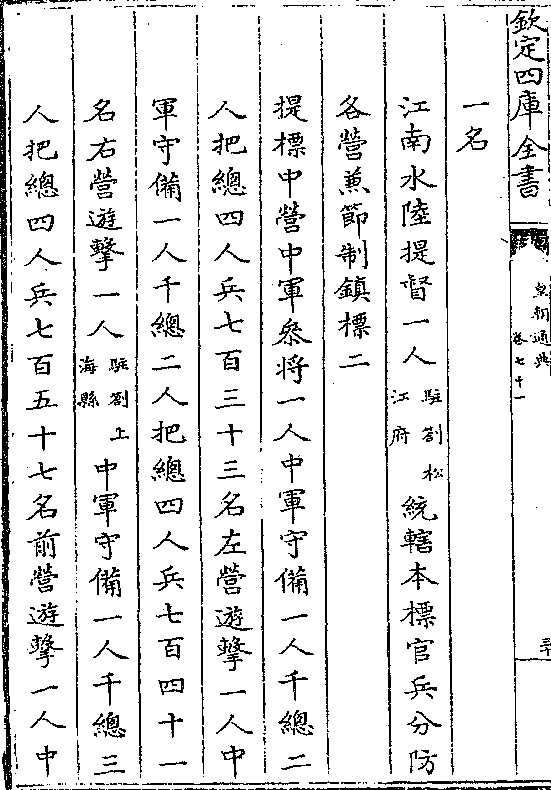 欽定四庫全書
皇朝通典
卷七十一
一名
江南水陸提督一人駐劄松江府統轄本標官兵分防
各營兼節制鎮標二
提標中營中軍叅將一人中軍守備一人千總二
人把總四人兵七百三十三名左營遊擊一人中
軍守備一人千總二人把總四人兵七百四十一
名右營遊擊一人駐劄上海縣中軍守備一人千總三
人把總四人兵七百五十七名前營遊擊一人中